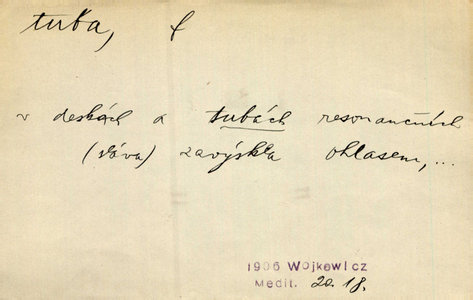 tuba, f
v deskách a tubách resonančních
(sláva) zavýskla ohlasem,...
1906 Wojkewicz
Medit. 20.18.